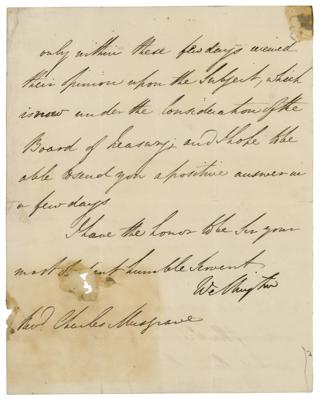 only within these few days received
their opinion upon the Subject, which
is now under the Consideration of the
Board of Treasury; and I hope to be
able to send you a positive answer in
a few days
I have the honor to be Sir your
most humble Servant
Wellington
Revd. Charles Musgrave